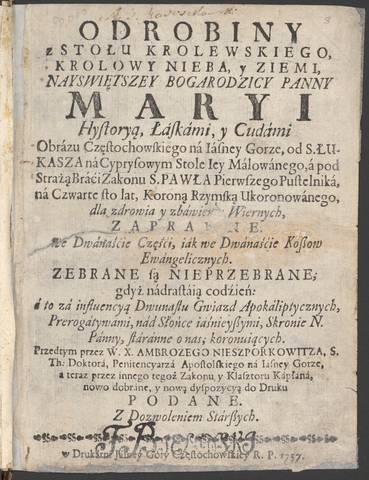 3
ODROBINY
z STOŁU KROLEWSKIEGO,
KROLOWY NIEBA, y ZIEMI,
NAYSWIĘTSZEY BOGARODZICY PANNY
MARYI
Hystoryą, Łáskámi, y Cudámi
Obrázu Częstochowskiego ná Iásney Gorze, od S. ŁU-
KASZA ná Cyprysowym Stole Iey Málowánego, á pod
Strażą Bráći Zakonu S. PAWŁA Pierwszego Pustelniká,
ná Czwarte sto lat, Koroną Rzymską Ukoronowánego,
dla zdrowia y zbáwienia Wiernych,
we Dwánaśćie Części, iak we Dwánaśćie Koszow
Ewángelicznych.
ZEBRANE są NIEPRZEBRANE;
gdyż nádrastáią codzień:
á to zá influencyą Dwunastu Gwiazd Apokáliptycznych,
Prerogátywámi, nád Słońce iáśnieyszymi, Skronie N.
Panny, stáránne o nas; koronuiących.
Przedtym przez W. X. AMBROZEGO NIESZPORKOWITZA, S.
Th. Doktorá, Penitencyarzá Apostolskiego ná Iásney Gorze,
a teraz przez innego tegoż Zakonu y Klasztoru Kápłaná,
nowo dobrane, y nową dyspozycyą do Druku
PODANE.
Z Dozwoleniem Stárszych.
w Drukárni Jásney Gory Częstochowskiey R. P. 1757.